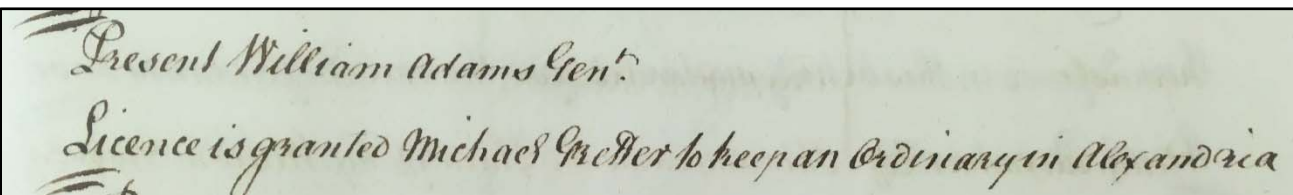 Present William Adams Gent.
Licence is granted Michael Gretter to keep an Ordinary in Alexandria